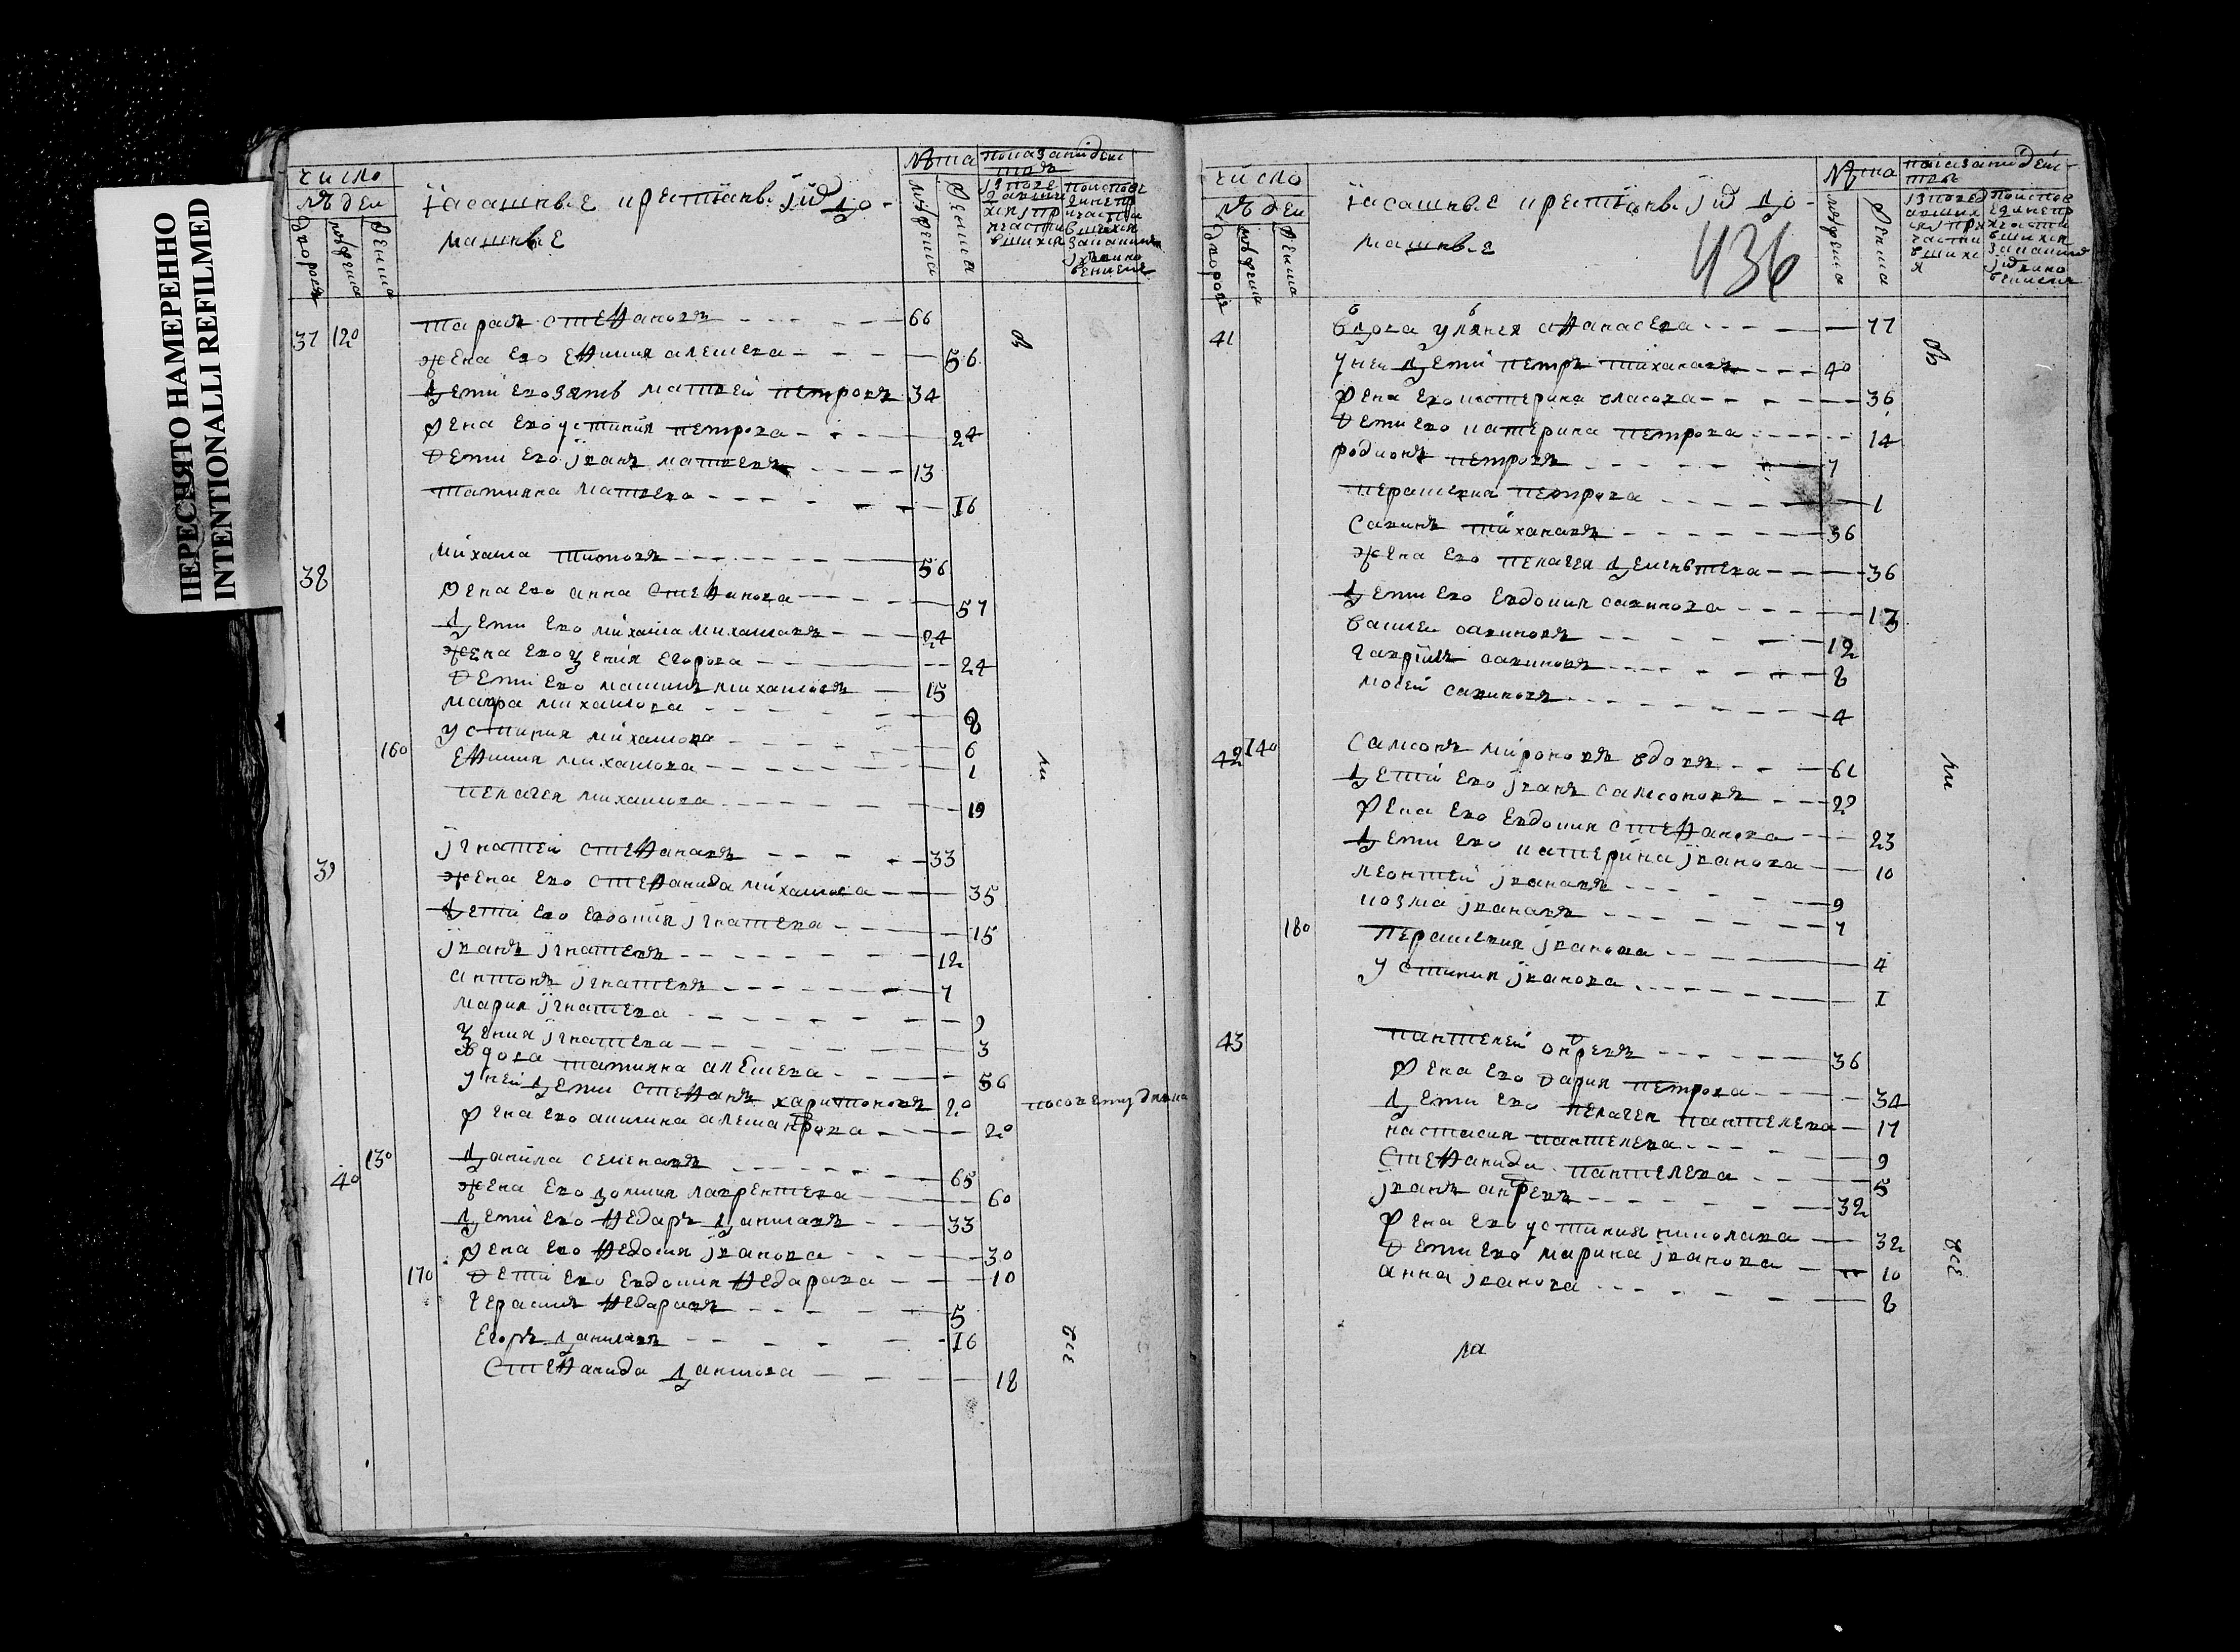 ПЕРЕСНЯТО НАМЕРЕННО
INTENTIONALLI REFILMED
число
людеи
дворовъ
мужеска
женска
ясашные крестьяне и до
машные
лѣта
мужеска
женска
показани деис
тва
37 120 тарасъ стефановъ 66
жена ево ефимия алексеева 56
дети ево зять матвеи петровъ 34
жена ево устиния петрова 24
дети ево иванъ матвеевъ 13
татияна матвеева 16
38 михаила титовъ 56
жена ево анна стефанова 57
дети ево михаила михаиловъ 24
жена ево ксения егорова 24
дети ево максимъ михаиловъ 15
мавра михаилова 8
устиния михаилова 6
160 ефимия михаилова 1
пелагея михаилова 19
39 игнатеи стефановъ 33
жена ево стефанида михаилова 35
дети ево евдокия игнатева 15
иванъ игнатевъ 12
антонъ игнатевъ 7
мария игнатева 9
ксения игнатева 3
вдова татияна алексеева 56
у неи дети стефанъ харитоновъ 20
жена ево акилина александрова 20
40 130 данила семеновъ 65
жена ево лаврентева 60
дети ево федоръ даниловъ 33
жена ево федосия иванова 30
170 дети ево евдокия федорова 10
герасимъ федоровъ 5
егоръ даниловъ 16
стефанида данилова 18
бы
ли
все
число
людеи
дворовъ
мужеска
женска
ясашные крестьяне и до
машные
436
лѣта
мужеска
женска
показани деис
твы
41 вдова ульяния афанасева 77
у неи дети петръ тихановъ 40
жена ево катерина власова 36
дети ево катерина петрова 14
родионъ петровъ 7
перасковия петрова 1
савинъ тихановъ 36
жена ево пелагея дементева 36
дети ево евдокия савинова 13
василеи савиновъ 12
гаврилъ савиновъ 8
мосеи савиновъ 4
42 140 самсонъ мироновъ вдовъ 61
дети ево иванъ самсоновъ 29
жена ево евдокия стефанова 23
дети ево катерина иванова 10
леонтеи ивановъ 9
козма ивановъ 7
180 перасковия иванова 4
устиния иванова 1
43 пантелеи андреевъ 36
жена ево дария петрова 34
дети ево пелагея пантелеева 17
настасия пантелеева 9
стефанида пантелеева 5
иванъ андреевъ 32
жена ево устиния николаева 32
дети ево марина иванова 10
анна иванова 8
бы
ли
все
ла